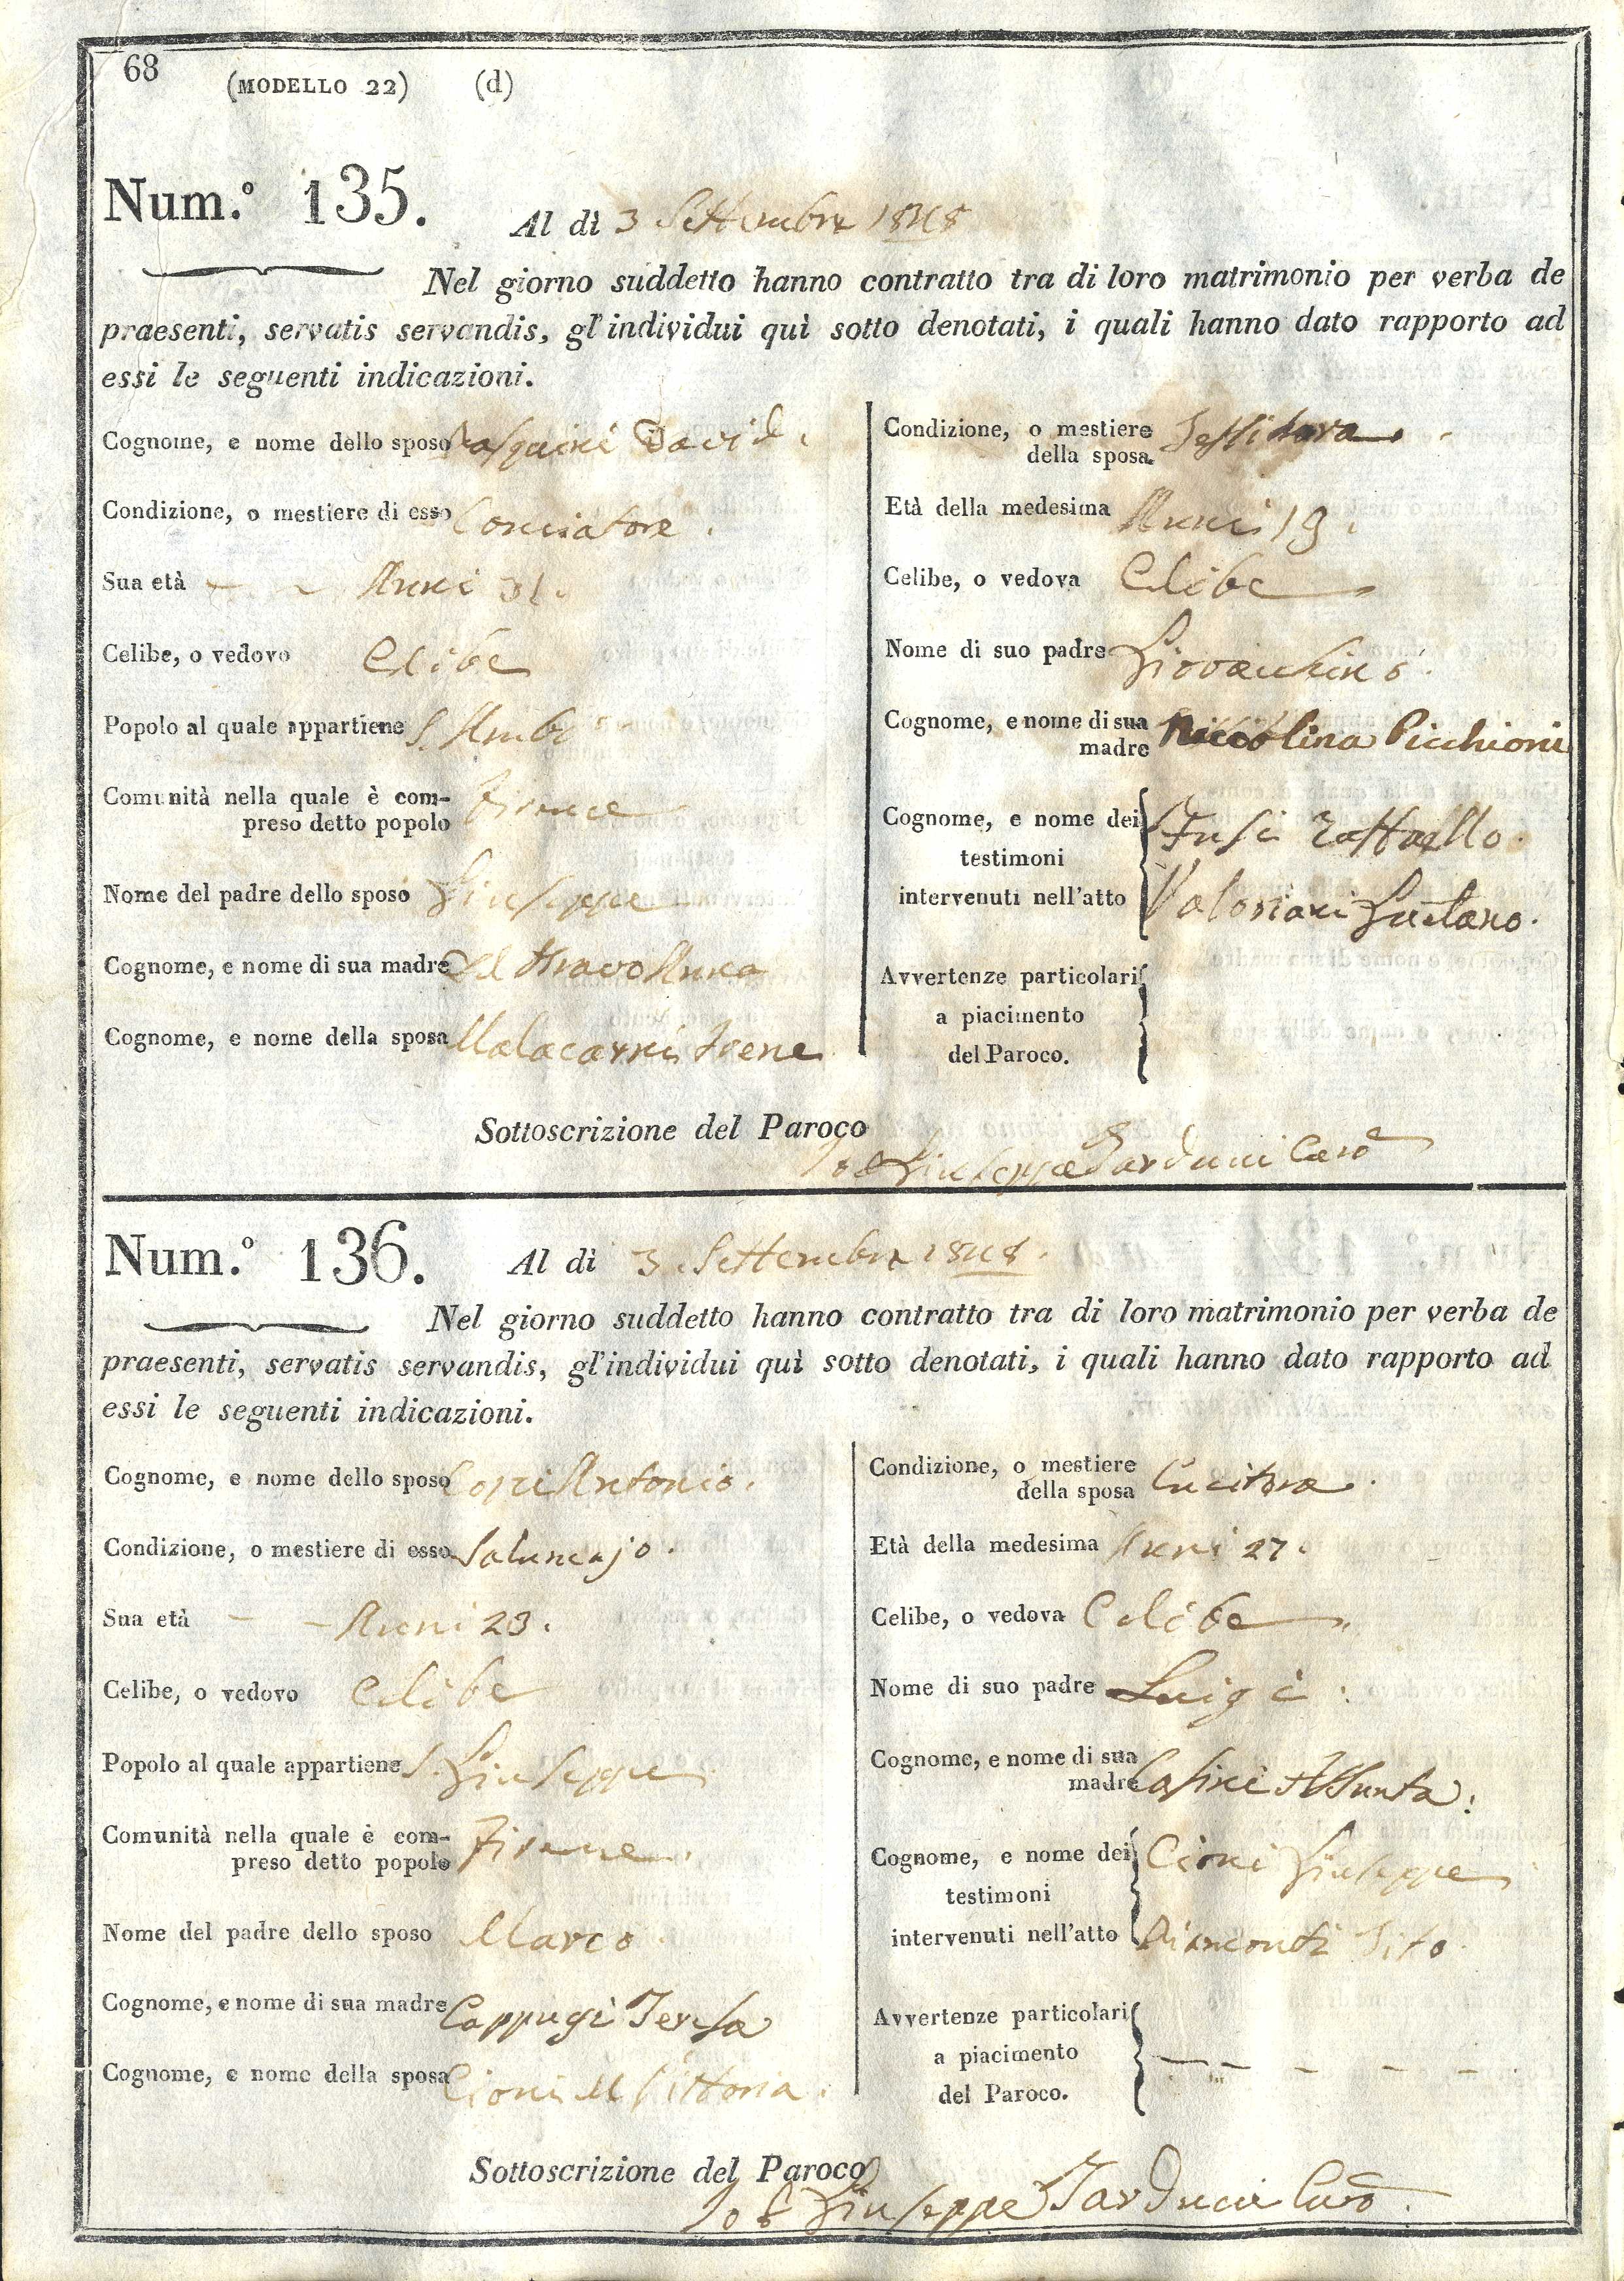 68
(MODELLO 22) (d)
Num.º 135.
Al dì 3 Settembre 1848
Nel giorno suddetto hanno contratto tra di loro matrimonio per verba de
praesenti, servatis servandis, gl'individui quì sotto denotati, i quali hanno dato rapporto ad
essi le seguenti indicazioni.
Cognome, e nome dello sposo Pasquini David.
Condizione, o mestiere di esso Conciatore.
Sua età - - Anni 31.
Celibe, o vedovo Celibe
Popolo al quale appartiene S. Amb.º
Comunità nella quale è com-
preso detto popolo Firenze
Nome del padre dello sposo Giuseppe
Cognome, e nome di sua madre Del Bravo Anna
Cognome, e nome della sposa Malacarni Irene
Condizione, o mestiere
della sposa. Tessitora.
Età della medesima Anni 19.
Celibe, o vedova Celibe
Nome di suo padre Giovacchino.
Cognome, e nome di sua
madre Niccolina Picchioni
Cognome, e nome dei Fusi Raffaello.
testimoni
intervenuti nell'atto Valoriani Gaetano.
Avvertenze particolari
a piacimento
del Paroco.
Sottoscrizione del Paroco
Giuseppe Tarducci
Num.º 136.
Al dì 3 Settembre 1848.
Nel giorno suddetto hanno contratto tra di loro matrimonio per verba de
praesenti, servatis servandis, gl'individui quì sotto denotati, i quali hanno dato rapporto ad
essi le seguenti indicazioni.
Cognome, e nome dello sposo Antonio.
Condizione, o mestiere di esso Salumajo.
Sua età - - Anni 23.
Celibe, o vedovo Celibe
Popolo al quale appartiene S. Giuseppe
Comunità nella quale è com-
preso detto popolo Firenze.
Nome del padre dello sposo Marco.
Cognome, e nome di sua madre Cappugi Teresa
Cognome, e nome della sposa Cioni M Vittoria.
Condizione, o mestiere
della sposa Cucitora.
Età della medesima Anni 27.
Celibe, o vedova Celibe
Nome di suo padre Luigi:
Cognome, e nome di sua
madre Casini Assunta:
Cognome, e nome dei Cioni Giuseppe
testimoni
intervenuti nell'atto Tito.
Avvertenze particolari
a piacimento - - - - -
del Paroco.
Sottoscrizione del Paroco
Giuseppe Tarducci